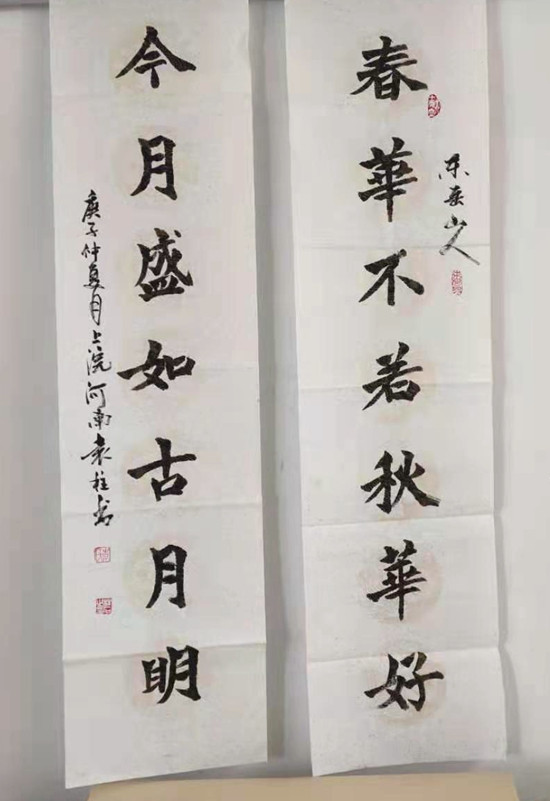 春華不若秋華好
山人
今月盛如古月明
庚子仲夏月上浣河南袁柱书